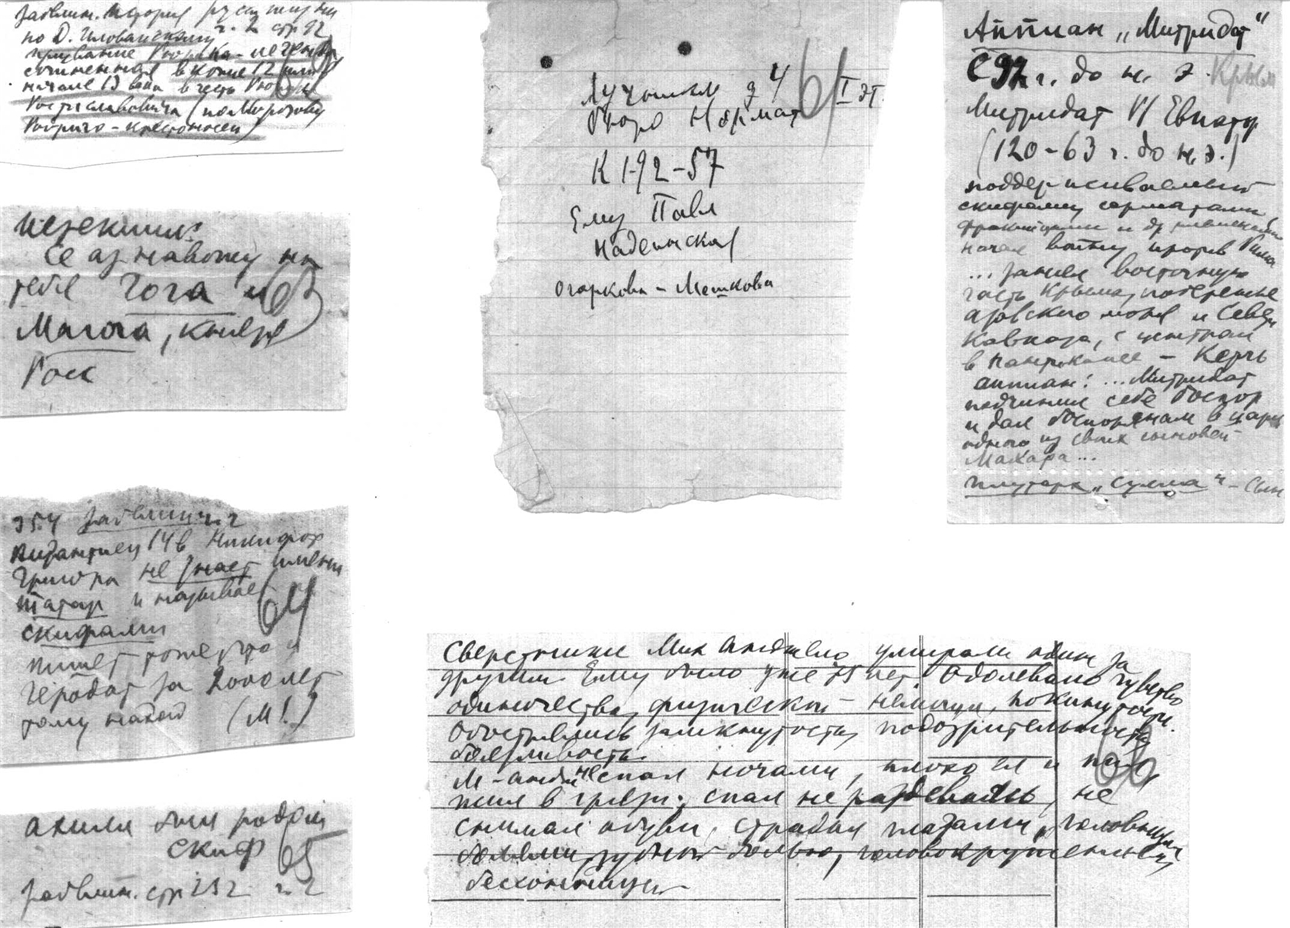 Забелин. История русск жизни
по Д. Иловайскому ч. 2 стр 92
призвание Рюрика - легенда
сочиненная в конце 12 или
начале 13 века в честь Рюрика
Ростиславовича (по Морозову
Рюрига - крестоносец)
Иезекииль
Се аз навожу на
тебя Гога и 63
Магога, князя
Росс
354 Забелин ч. 2
византиец 14 в Никифор
Григора не знает имени
татар и называет
скифами 64
пишет тоже что и
Геродот за 2000 лет
тому назад (М!)
Ахилл был родом
скиф 65
Забелин. стр 252 ч. 2
д 4 61 I эт.
бюро Нормат
К 1-92-57
Ему Павл
Огаркова - Мешкова
Аппиан „Митридат“
С 92 г. до н. э. Крым
Митридат VI Евпатор
(120-63 г. до н. э.)
поддерживаемый
скифами сарматами,
фракийцами и др племенами
начал войну против Рима
... занял восточную
часть Крыма, побережье
азовского моря и Север
Кавказа, с центром
в Пантикапее - Керчь
Аппиан: ... Митридат
подчинил себе Боспор
и дал боспорянам в цари
одного из своих сыновей
Махара...
Плутарх „Сулла“ - Сын
Сверстники Мик Анджело умирали один за
другим Ему было уже 75 лет Одолевало чувство
одиночества, физической немощи, покинутости.
Обострялись замкнутость, подозрительность
боязливость 66
М-Андж не спал ночами, плохо ел и пил
жил в грязи; спал не раздеваясь, не
снимал обуви, страдал головными
болями, зубной болью, головокружениями
бессонницей